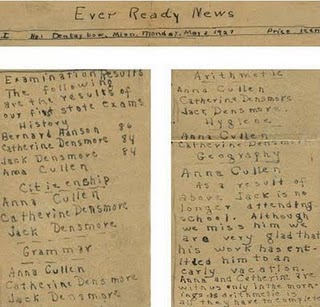 Ever Ready News
No. 1 Minn. Monday, May 2 1927 Price
Examination Results
The following
are the results of
our first state exams
History
Bernard Hanson 86
Catherine Densmore 84
Jack Densmore 84
Anna Cullen
Citizenship
Anna Cullen
Catherine Densmore
Jack Densmore
Grammar
Anna Cullen
Catherine Densmore
Jack Densmore
Arithmetic
Anna Cullen
Catherine Densmore
Jack Densmore.
Hygiene
Anna Cullen
Catherine Densmore
Geography
Anna Cullen
As a result of
above Jack is no
longer attending
school. Although
we miss him we
are very glad that
his work has ent-
itled him to an
early vacation.
Anna and Catherine are
with us only in the morn-
ings as arithmetic is
all they have to